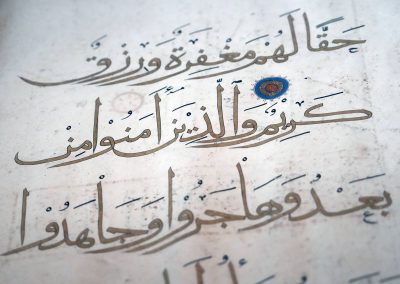 حَقًّا لَهُم مَغْفِرَةٌ وَرِزْقٌ
كَرِيمٌ وَالَّذِينَ آمَنُوا مِنْ
بَعْدُ وَهَاجَرُوا وَجَاهَدُوا